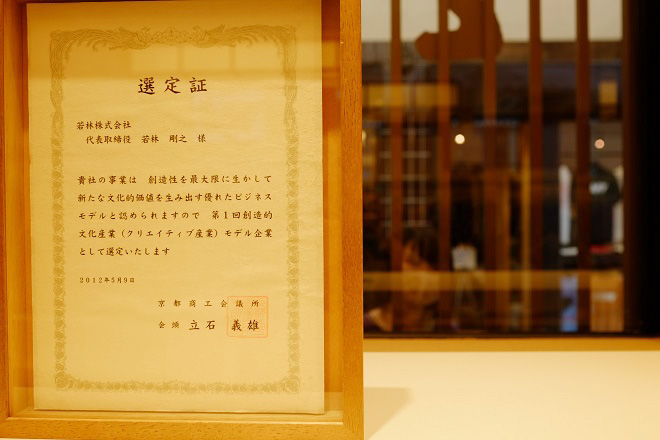 選定証
若林株式会社
代表取締役 若林 剛之 様
貴社の事業は 創造性を最大限に生かして
新たな文化的価値を生み出す優れたビジネス
モデルと認められますので 第1回創造的
文化産業(クリエイティブ産業)モデル企業
として選定いたします
2012年5月9日
京都商工会議所
会頭 立石 義雄